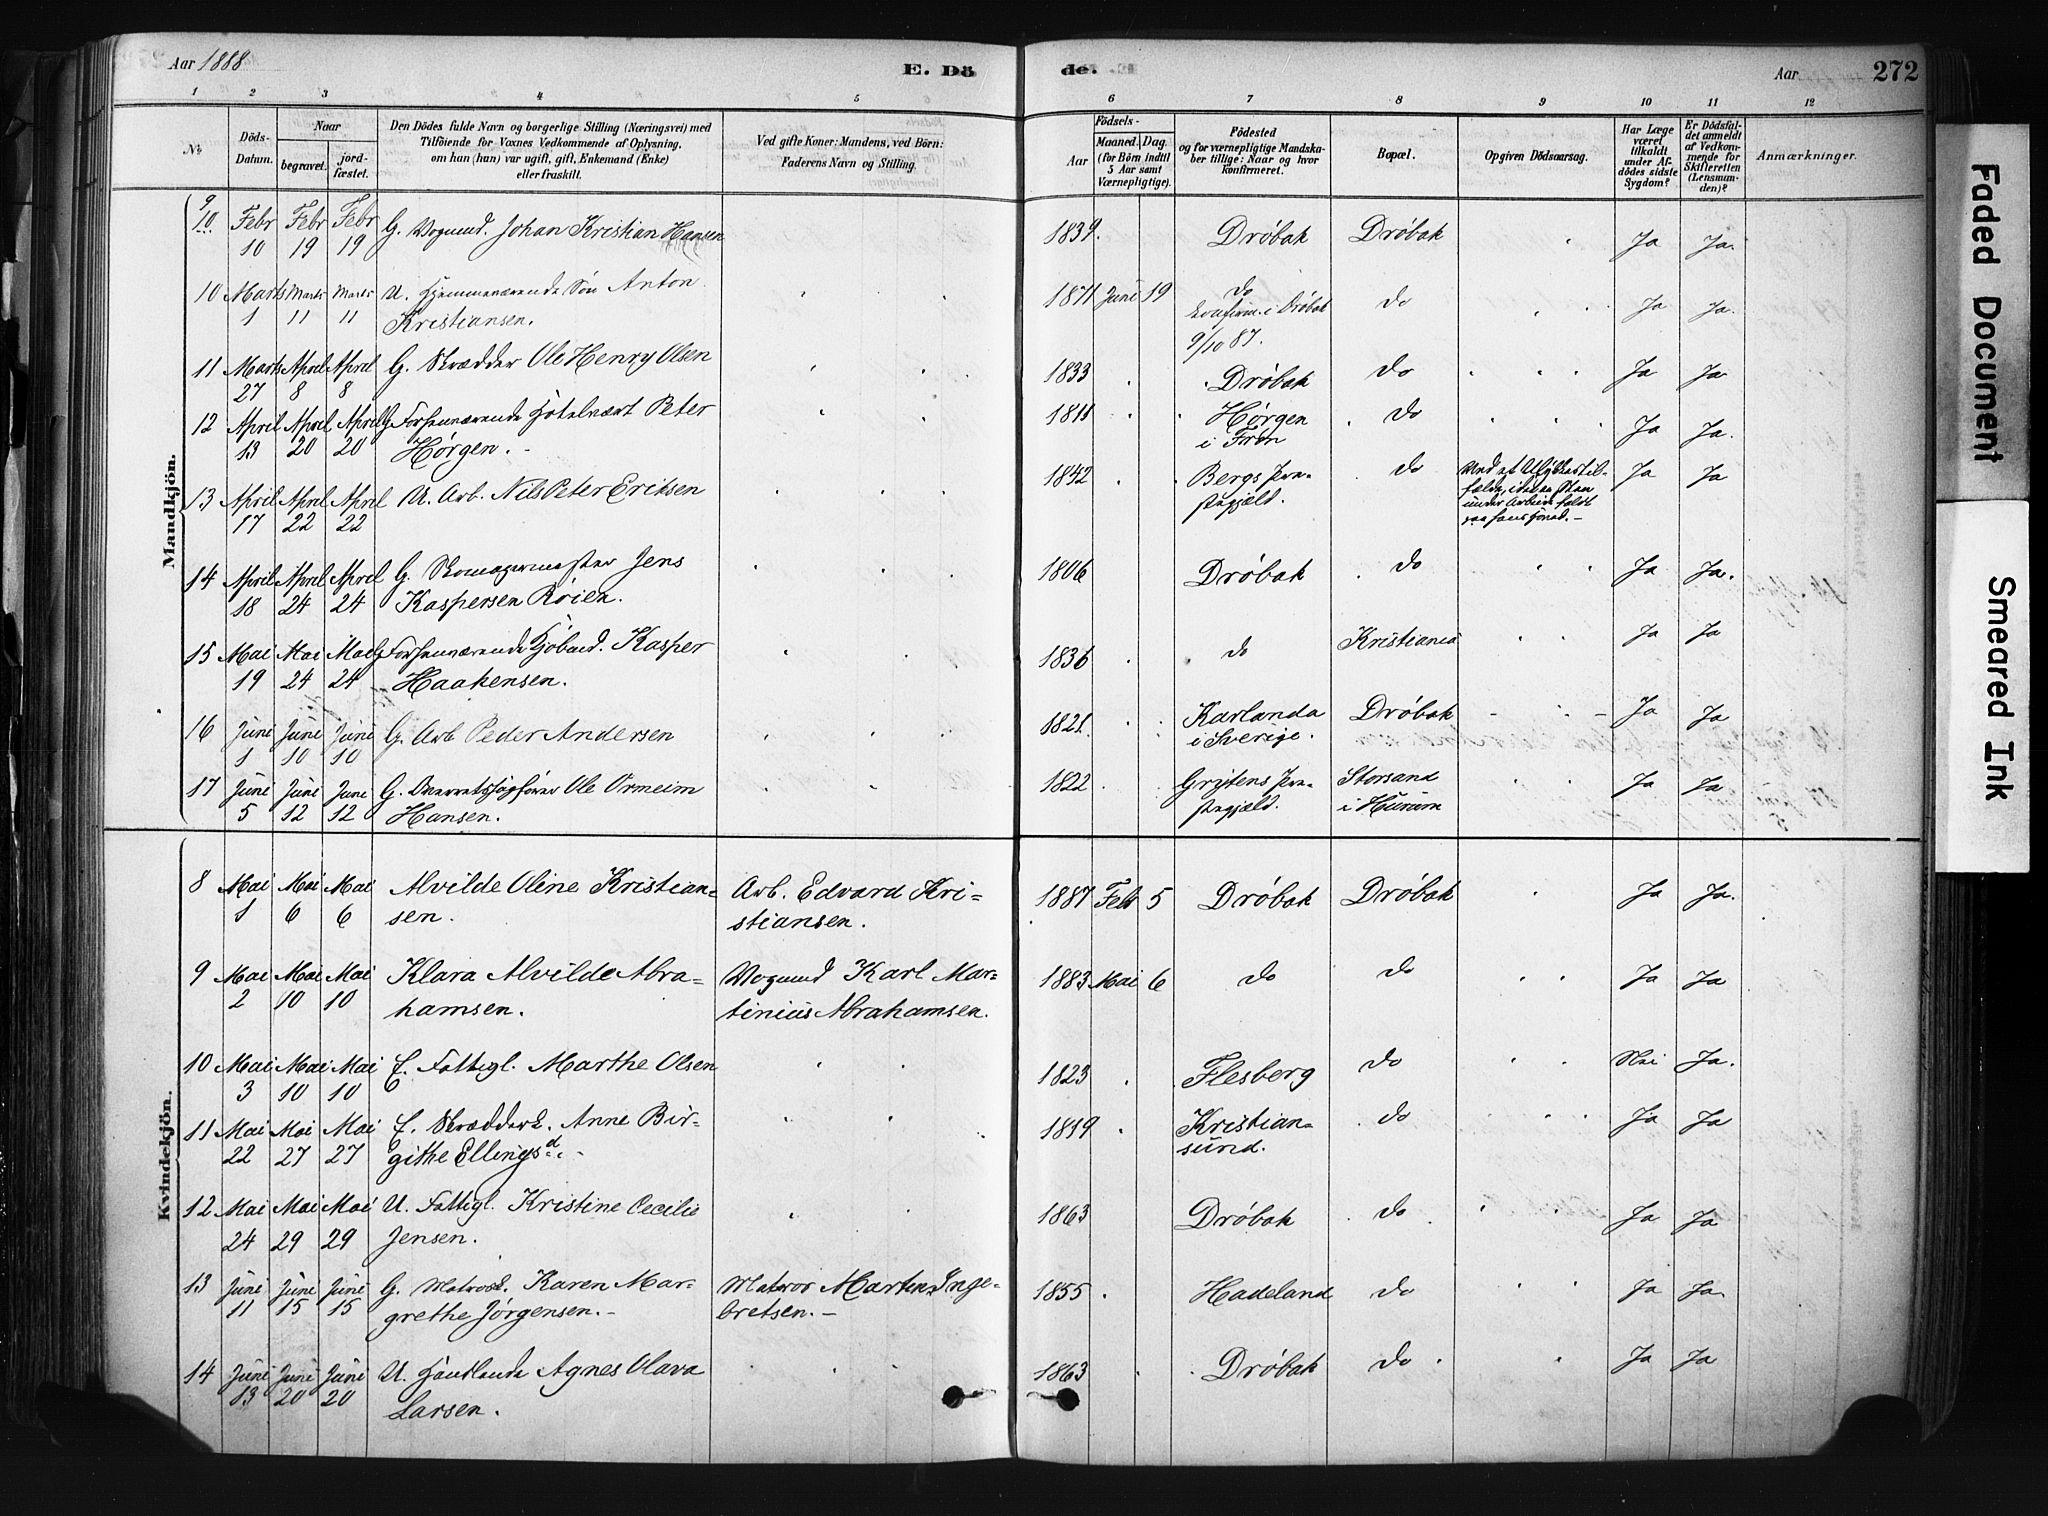 Aar 1888
E. Dö
de.
Aar
272
1 2 3 4 5 6 7 8 9 10 11 12
No
Döds-
Datum.
Naar
begravet.
jord-
fæstet.
Den Dödes fulde Navn og borgerlige Stilling (Næringsvei) med
Tilföiende for Voxnes Vedkommende af Oplysning,
om han (hun) var ugift, gift, Enkemand (Enke)
eller fraskilt.
Ved gifte Koner: Mandens, ved Börn:
Faderens Navn og Stilling.
Födsels-
Aar
Maaned. Dag.
(for Börn indtil
5 Aar samt
Værnepligtige).
Födested
og for værnepligtige Mandska-
ber tillige: Naar og hvor
konfirmeret.
Bopæl.
Opgiven Dödsaarsag.
Har Læge
været
tilkaldt
under Af-
dödes sidste
Sygdom?
Er Dödsfal-
det anmeldt
af Vedkom-
mende for
Skifteretten
(Lensman-
den)?
Anmærkninger.
Mandkjön.
9
10 Febr 10 Febr 19 Febr 19 G. Vognmd. Johan Kristian Hansen 1839. Drøbak Drøbak Ja Ja.
10 Marts 1 Marts 11 Marts 11 U. Hjemmeværende Søn Anton
Kristiansen. 1871 Juni 19 do
konfirm. i Drøbak
9/10 87. do Ja Ja.
11 Marts 27 April 8 April 8 G. Skrædder Ole Henry Olsen 1833 Drøbak do Ja Ja.
12 April 13 April 20 April 20 G. Forhenværende Hotelvært Peter
Hørgen. 1811 Hørgen
i Fron do Ja Ja.
13 April 17 April 22 April 22 U. Arb. Nils Peter Eriksen 1842 Bergs Præ-
stegjæld. do Ved et Ulykkestil-
fælde,
under Arbeide faldt
paa hans Hoved. Ja Ja
14 April 18 April 24 April 24 G. Skomagermester Jens
Kaspersen Røien. 1806 Drøbak do Ja Ja.
15 Mai 19 Mai 24 Mai 24 G. Forhenværende Kjøbmd. Kasper
Haakensen. 1836 do Kristiania Ja Ja
16 Juni 1 Juni 10 Juni 10 G. Arb. Peder Andersen 1821 Karlanda
i Sverige. Drøbak Ja Ja
17 Juni 5 Juni 12 Juni 12 G. Ole Ormeim
Hansen. 1822 Grytens Præ-
stegjæld. Storsand
i Hurum Ja Ja
Kvindekjön.
8 Mai 1 Mai 6 Mai 6 Alvilde Oline Kristian-
sen. Arb. Edvard Kri-
stiansen. 1887 Febr 5 Drøbak Drøbak Ja Ja.
9 Mai 2 Mai 10 Mai 10 Klara Alvilde Abra-
hamsen. Vognmd Karl Mar-
tinius Abrahamsen. 1883 Mai 6 do do Ja Ja
10 Mai 3 Mai 10 Mai 10 E. Fattigl. Marthe Olsen 1823 Flesberg do Nei Ja.
11 Mai 22 Mai 27 Mai 27 E. Skrædderk. Anne Bir-
githe Ellingsd. 1819 Kristian-
sund. do Ja Ja
12 Mai 24 Mai 29 Mai 29 U. Fattigl. Kristine Cecilie
Jensen. 1863 Drøbak do. Ja Ja
13 Juni 11 Juni 15 Juni 15 G. Matrosk. Karen Mar-
grethe Jørgensen. Matros Martin Inge-
bretsen. 1855 Hadeland do Ja Ja.
14 Juni 13 Juni 20 Juni 20 U. Agnes Olava
Larsen. 1863 Drøbak do Ja Ja
Faded Document
Smeared Ink